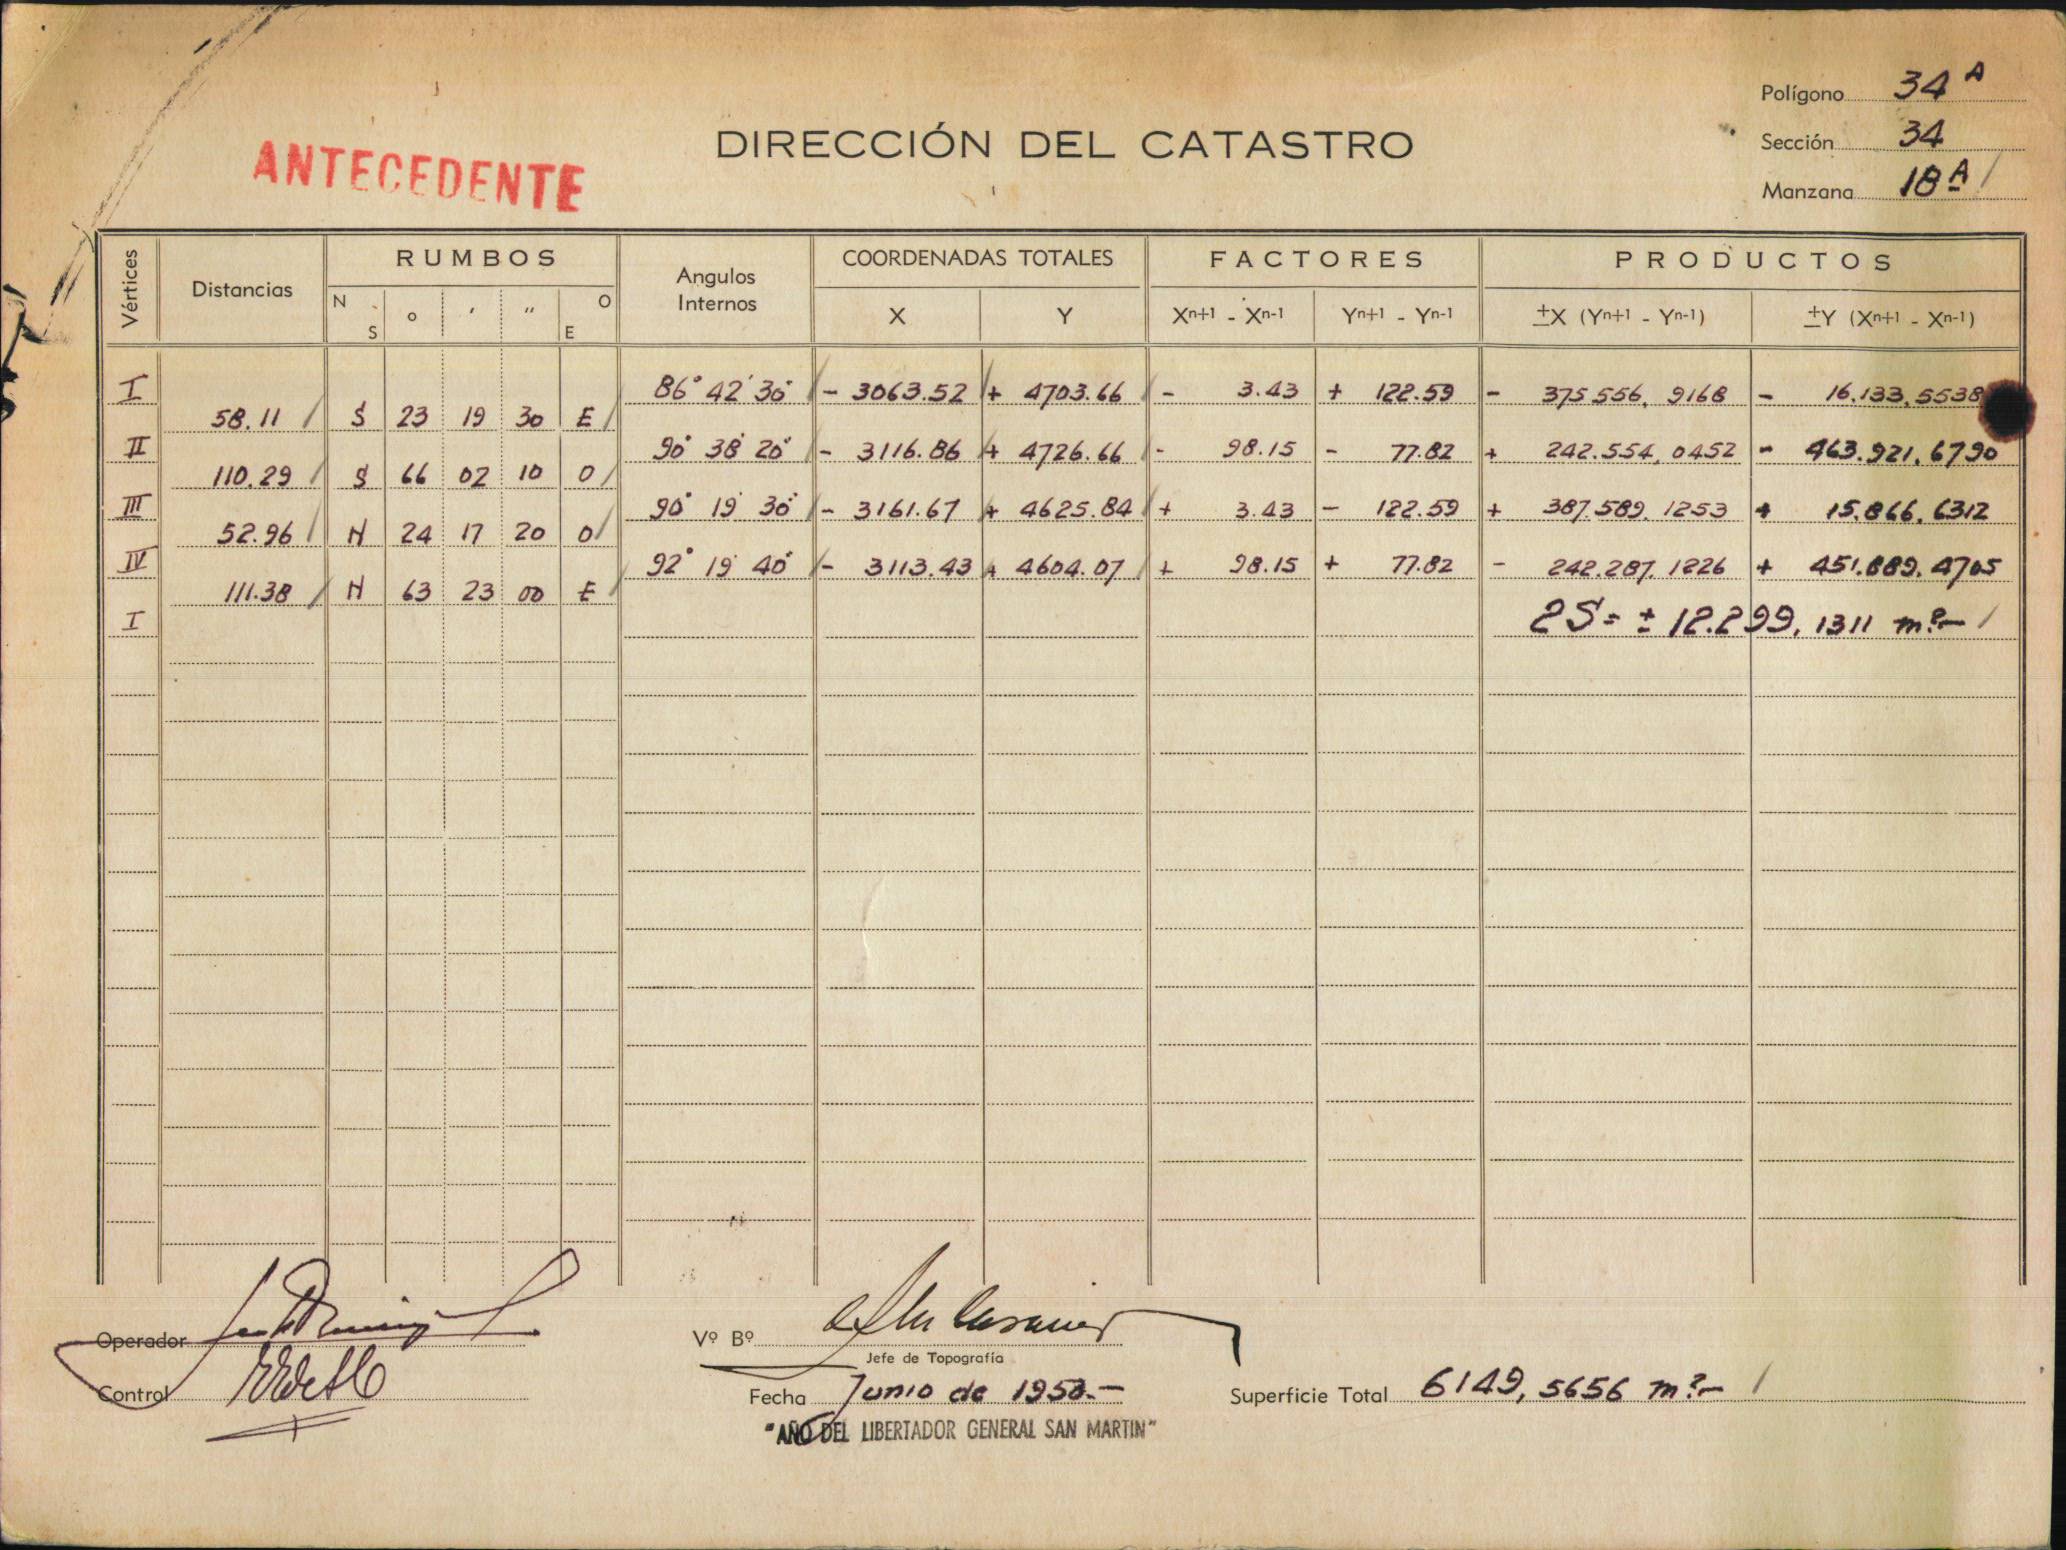 Polígono 34 A
Sección 34
Manzana 18 A
ANTECEDENTE
DIRECCIÓN DEL CATASTRO
Vértices Distancias RUMBOS Angulos Internos COORDENADAS TOTALES FACTORES PRODUCTOS
N S o ' " O E X Y Xn+1 - Xn-1 Yn+1 - Yn-1 ±X (Yn+1 - Yn-1) ±Y (Xn+1 - Xn-1)
I 86° 42' 30" - 3063.52 + 4703.66 - 3.43 + 122.59 - 375.556,9168 - 16.133,5538
58.11 S 23 19 30 E
II 90° 38' 20" - 3116.86 + 4726.66 - 98.15 - 77.82 + 242.554,0452 - 463.921,6790
110.29 S 66 02 10 O
III 90° 19' 30" - 3161.67 + 4625.84 + 3.43 - 122.59 + 387.589,1253 + 15.866,6312
52.96 N 24 17 20 O
IV 92° 19' 40" - 3113.43 + 4604.07 + 98.15 + 77.82 - 242.287,1226 + 451.889,4705
111.38 N 63 23 00 E
I 2S = ± 12.299,1311 m2.-
Operador
Control
Vº Bº
Jefe de Topografía
Fecha Junio de 1950.-
"AÑO DEL LIBERTADOR GENERAL SAN MARTIN"
Superficie Total 6149,5656 m2.-